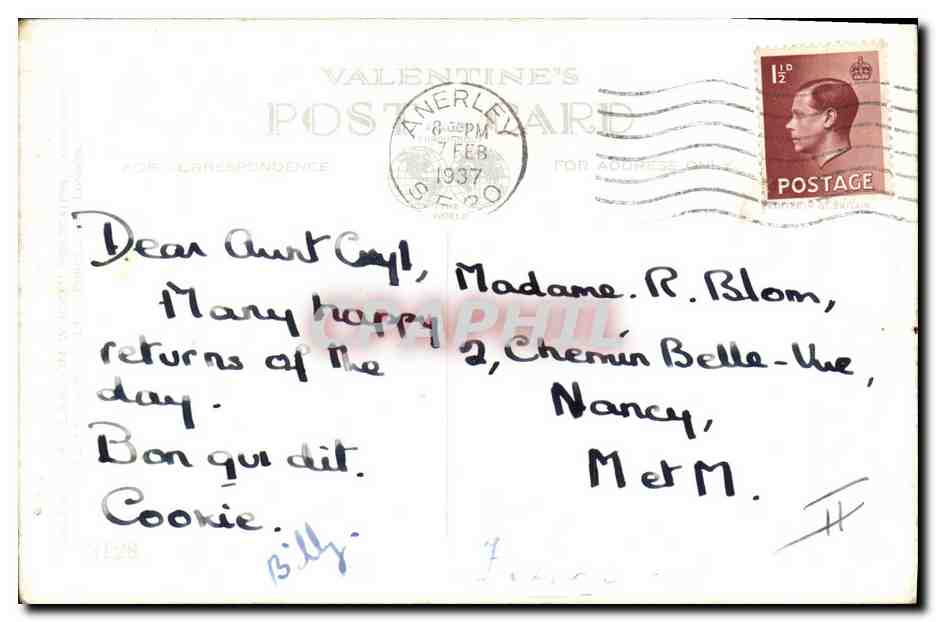 VALENTINE'S
POST CARD
ANERLEY
8 PM
7 FEB
1937
S.E.20
1½D
POSTAGE
FOR CORRESPONDENCE
FOR ADDRESS ONLY
WORLD
Dear Aunt
Many happy
returns of the
day.
Bon qui dit.
Cookie.
Billy.
Madame. R. Blom,
2, Chemin Belle-Vue,
Nancy,
M et M.
CPAPHIL
H
7